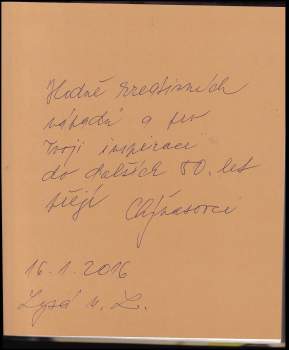 Hodně kreativních
nápadů a pro
Tvoji inspiraci
do dalších 80. let
přejí
16.1.2016
Lysá n. L.